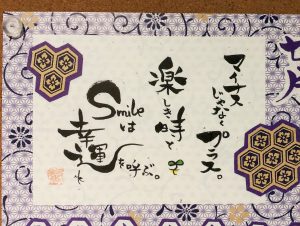 マイナス
じゃなく プラス。
楽しき時と
Smileは
幸運
を呼ぶ。